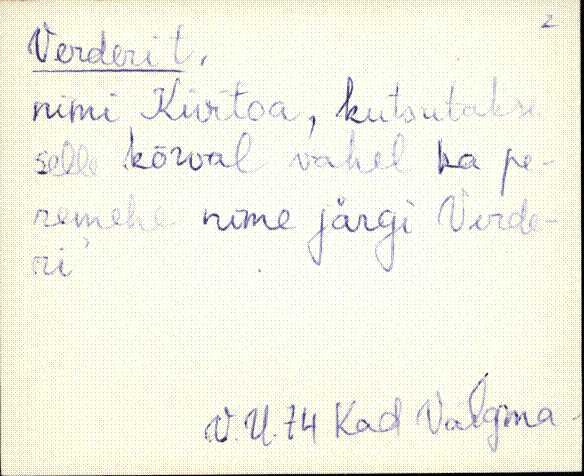 2
Verderi t.
nimi Kivitoa, kutsutakse
selle kõrval vahel ka pe-
remehe nime järgi Verde-
ri'
V.U. 74 Kad Valgma